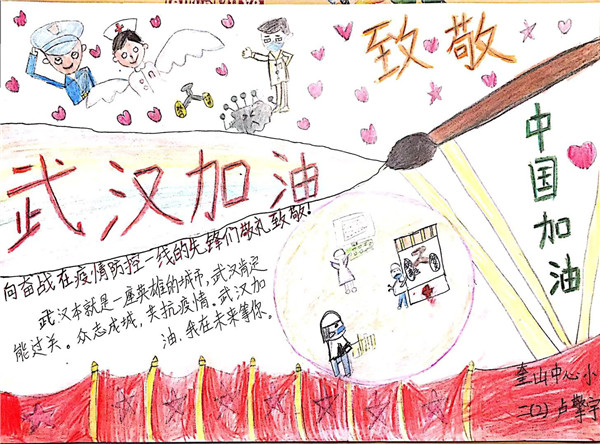 致敬
中国加油
武汉加油
向奋战在疫情防控一线的先锋们敬礼致敬!
武汉本就是一座英雄的城市,武汉肯定
能过关。众志成城,共抗疫情。武汉加
油,我在未来等你。
奎山中心小
二(2)卢擎宇